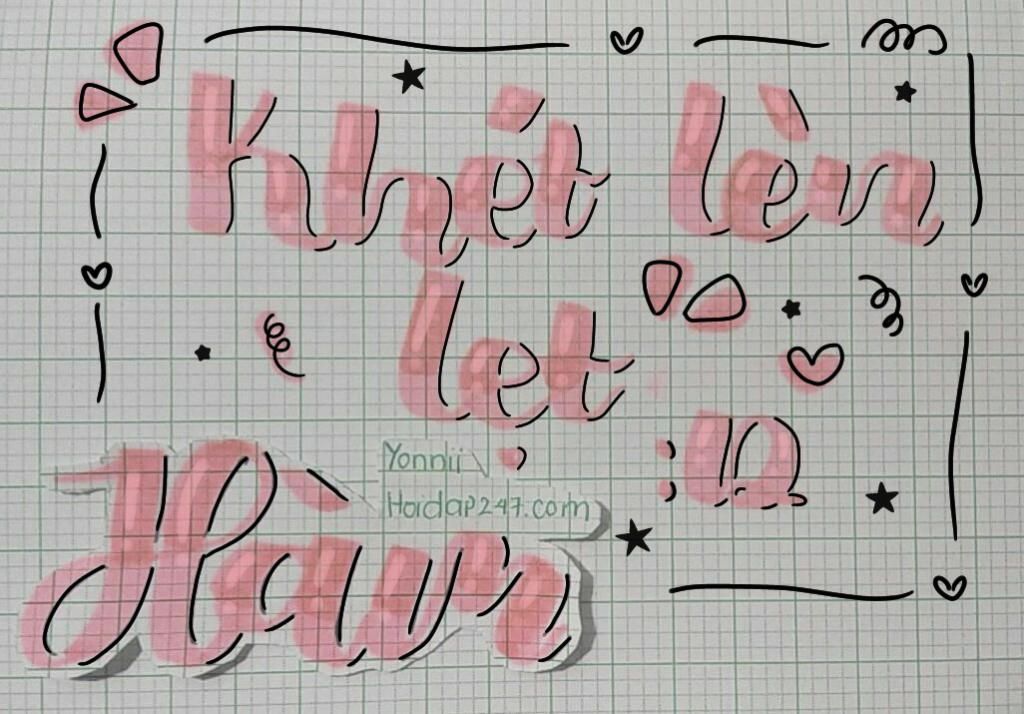 Khét lèn
lẹt
:D
Yonnii
Hoidap247.com